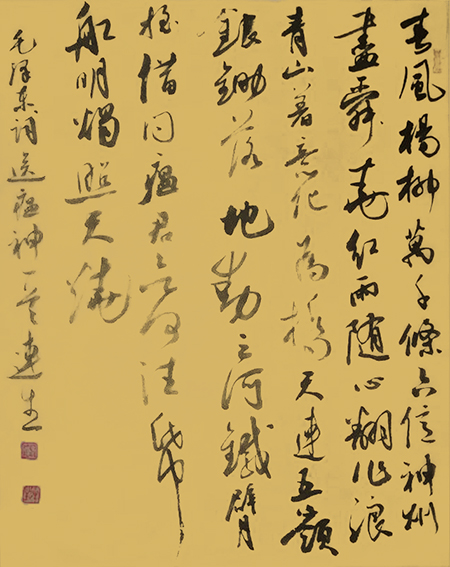 春風楊柳萬千條六億神州
盡舜堯紅雨随心翻作浪
青山著意化為橋天連五嶺
銀鋤落地動三河鐵臂
摇借问瘟君欲何往紙
船明燭照天燒
毛泽东词送瘟神一首連生